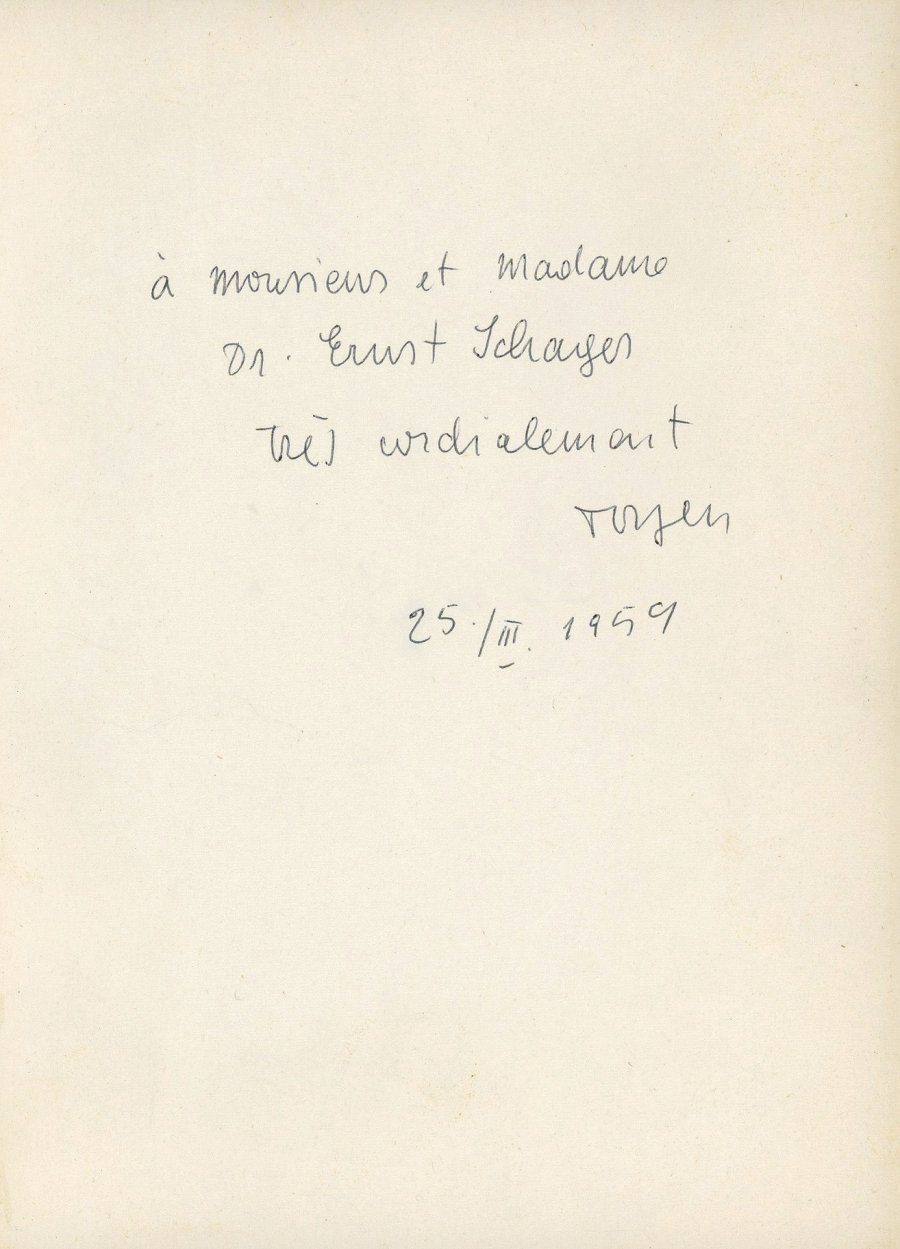 à Monsieur et Madame
Dr. Ernst Schager
très cordialement
Toyen
25./III. 1959